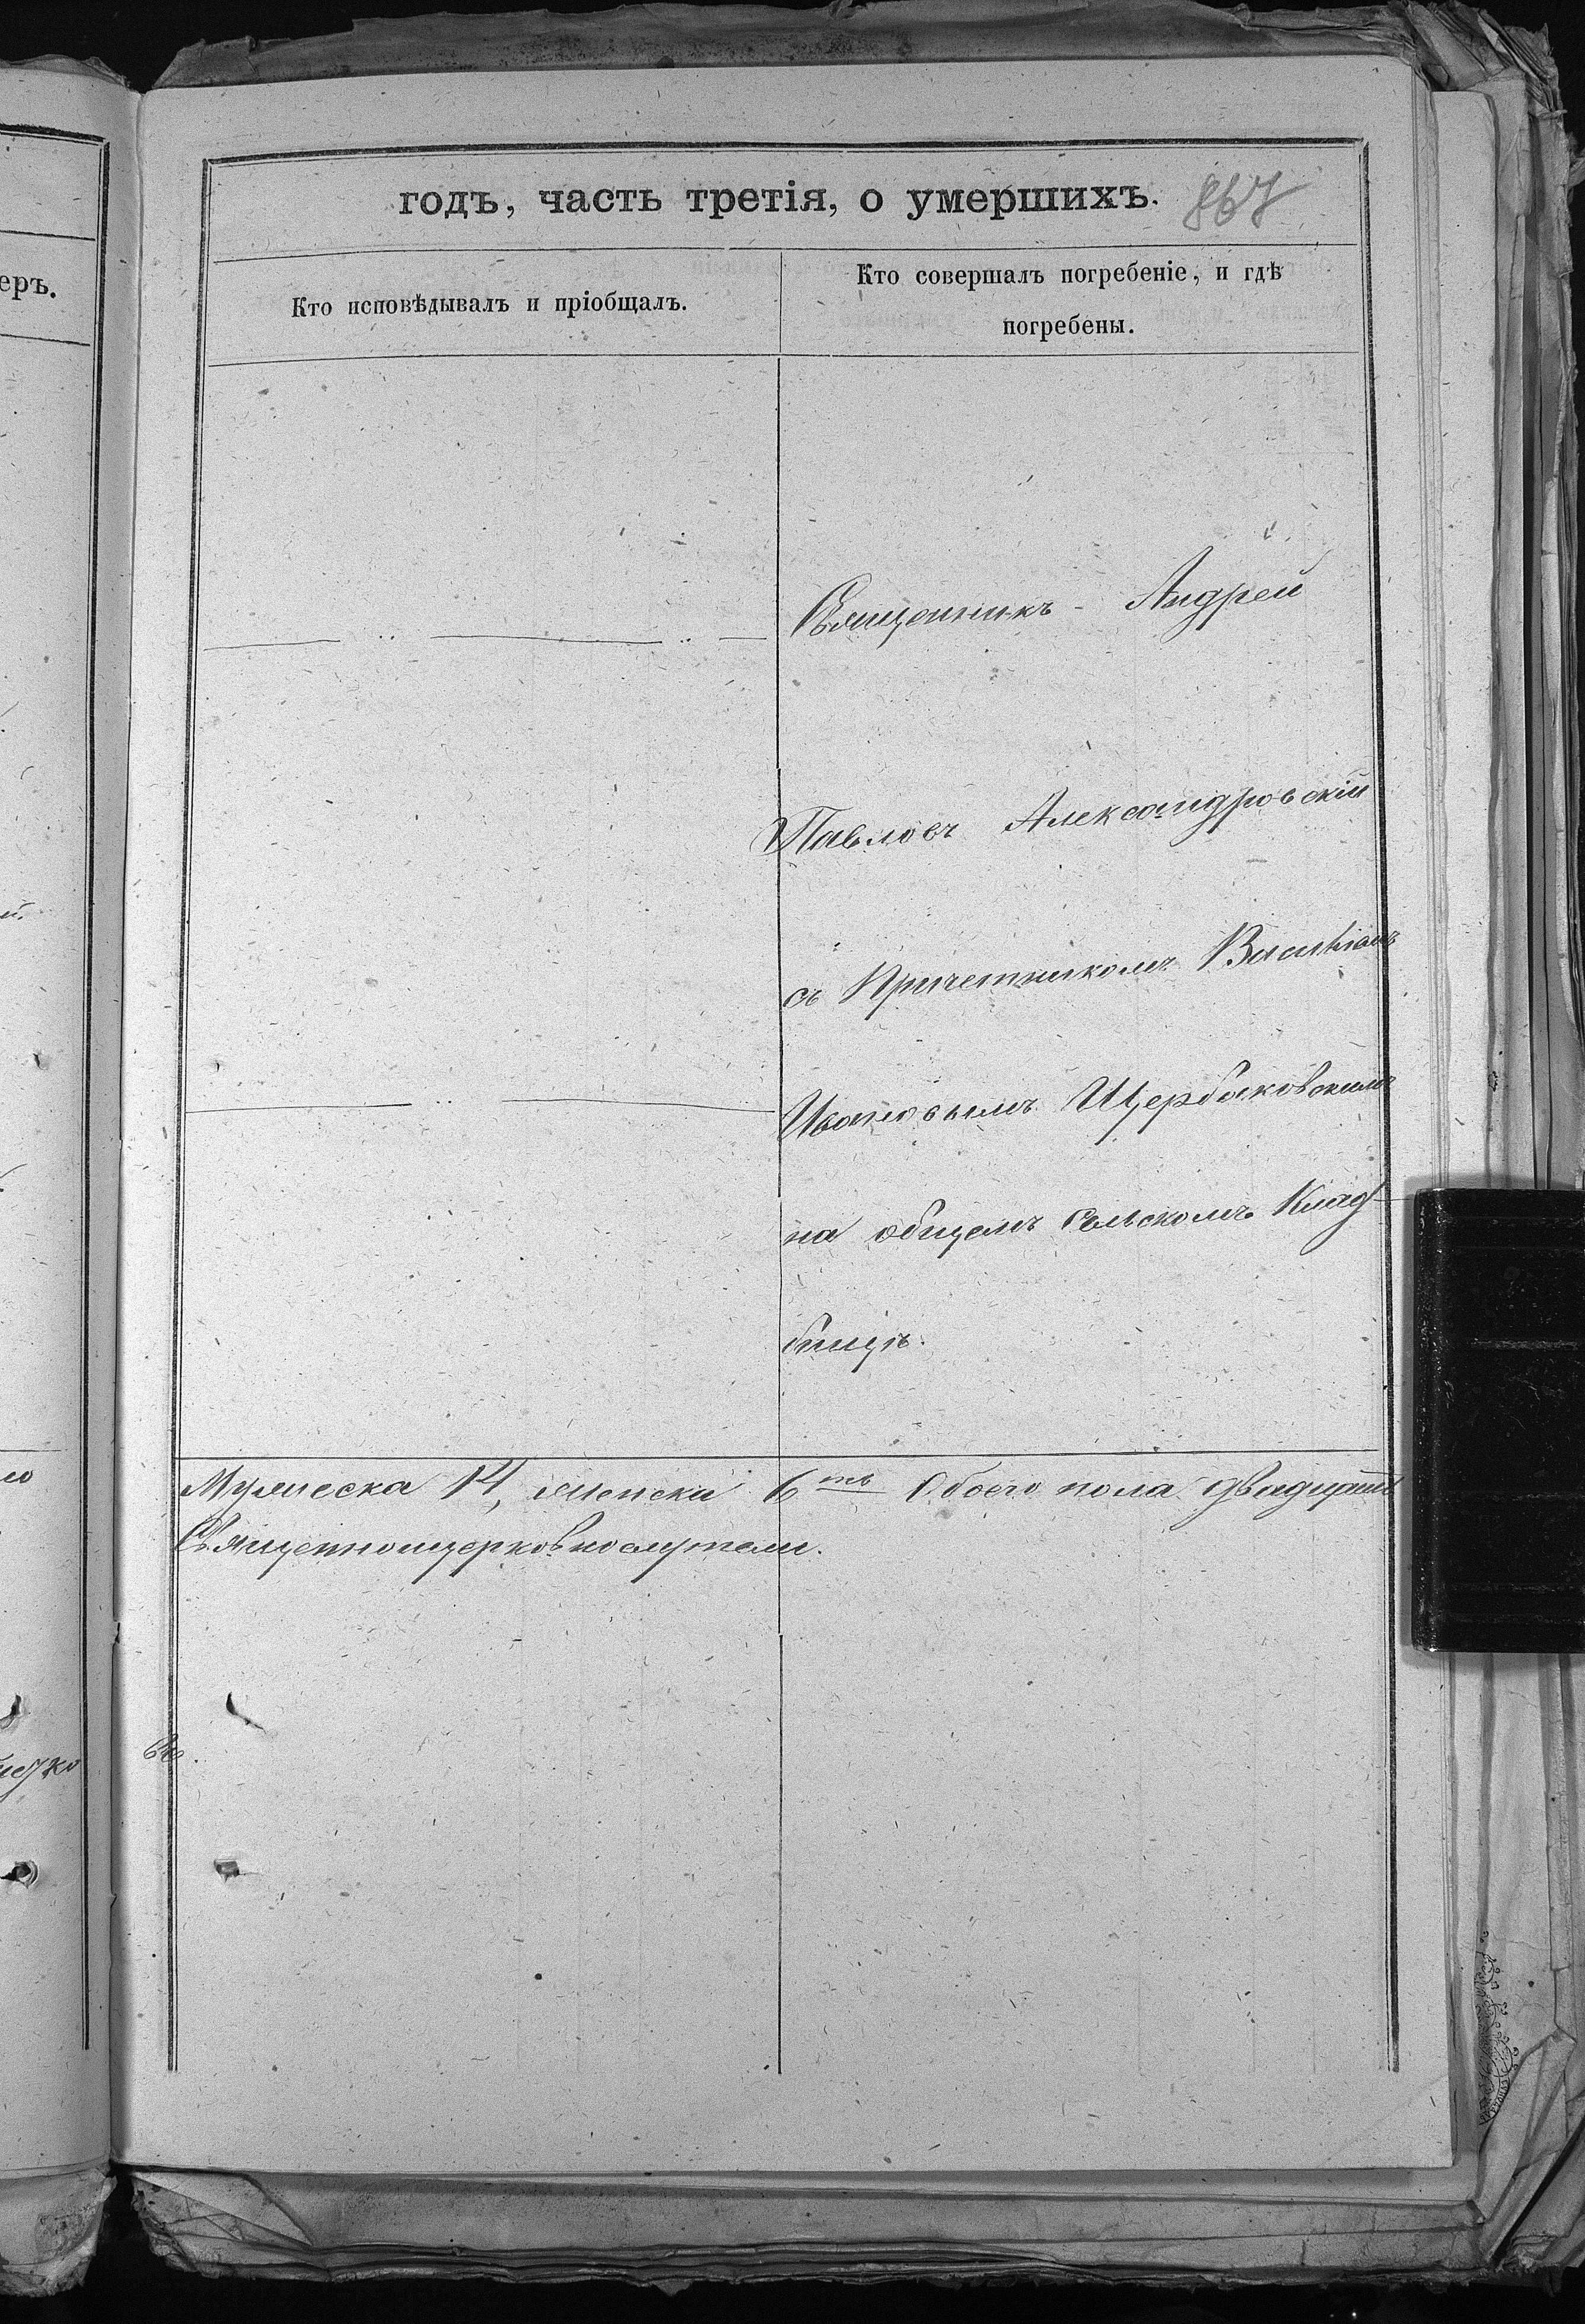 годъ, часть третія, о умершихъ. 867
Кто исповѣдывалъ и пріобщалъ.
Кто совершалъ погребеніе, и гдѣ
погребены.
Священникъ - Андрей
Павловъ Александровскій
съ Причетникомъ
Ивановымъ Щербаковскимъ
на общемъ сельскомъ Клад
бищѣ.
Мужеска 14, женска 6ть Обоего пола двадцать
Священноцерковнослужтели.
еръ.